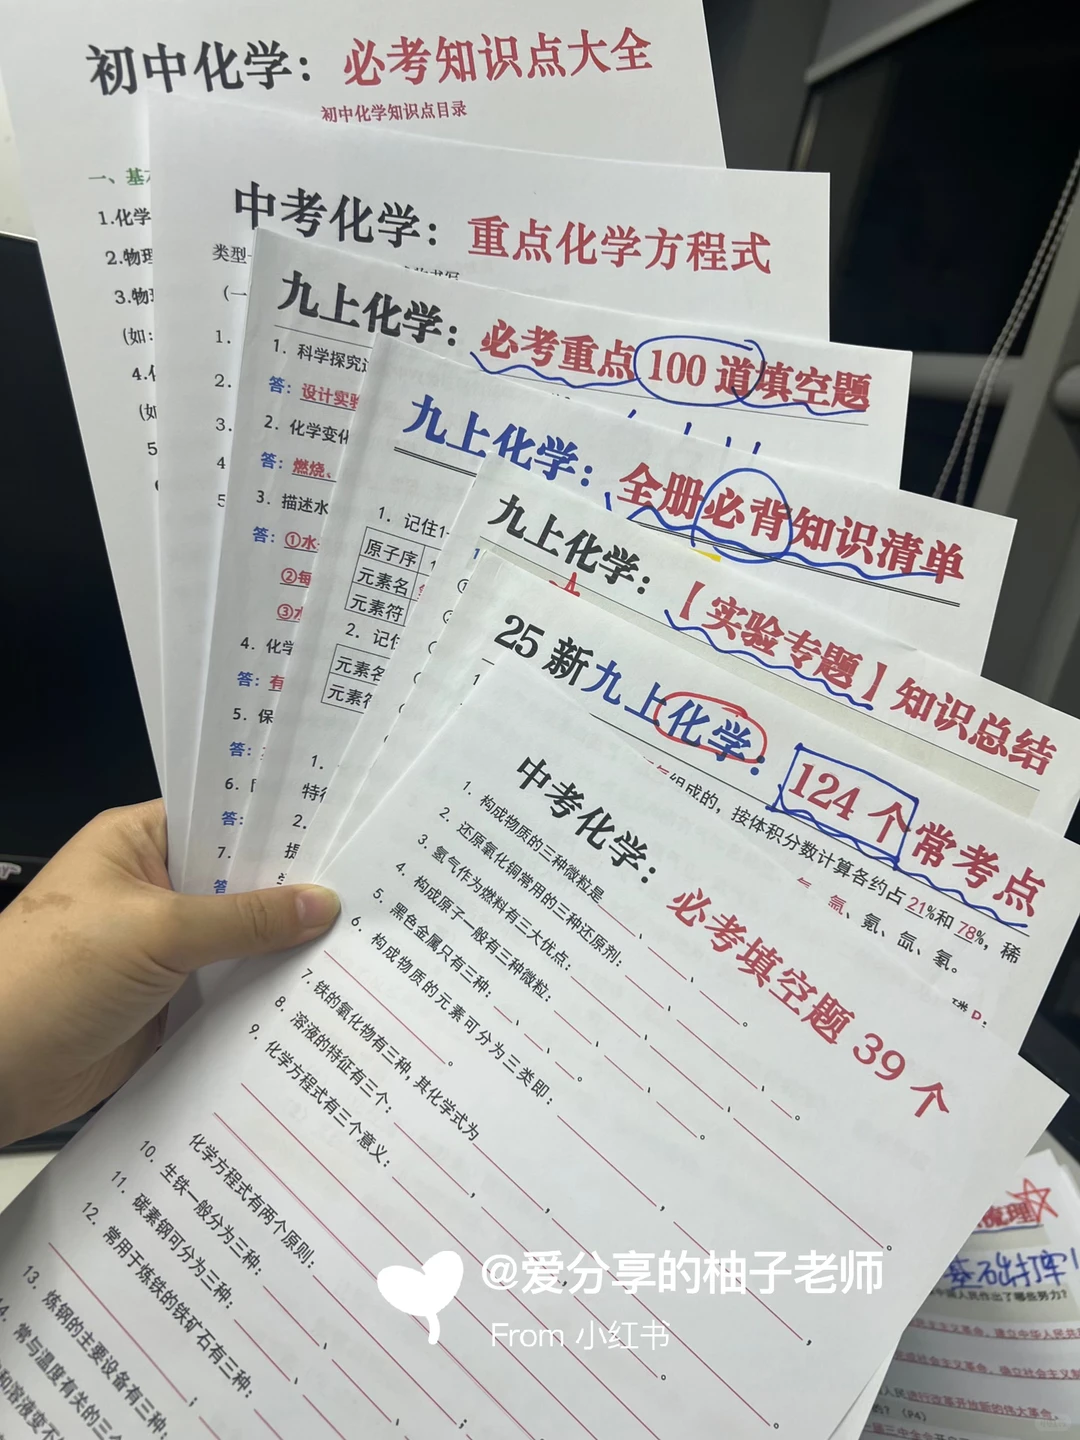 初中化学：必考知识点大全
初中化学知识点目录
一、基
1.化学
2.物理
3.物
(如：
4.
(如
5
中考化学：重点化学方程式
类型
(一
1.
2.
3.
4
5
九上化学：必考重点100道填空题
1. 科学探究
答：设计实验
2. 化学变化
答：燃烧、
3. 描述水
答：①水
②每
③
4. 化学
答：有
5. 保
答：
6.
答：
7.
答
九上化学：全册必背知识清单
1. 记住1
原子序
元素名
元素符
2. 记住
元素名
元素符
1.
特
2.
九上化学：【实验专题】知识总结
25新九上化学：124个常考点
组成的，按体积分数计算各约占21%和78%，稀
氩、氪、氙、氡。
D.
中考化学：必考填空题39个
1. 构成物质的三种微粒是、、。
2. 还原氧化铜常用的三种还原剂：、、。
3. 氢气作为燃料有三大优点：、、。
4. 构成原子一般有三种微粒：、、。
5. 黑色金属只有三种：、、。
6. 构成物质的元素可分为三类即：、、。
7. 铁的氧化物有三种，其化学式为、、。
8. 溶液的特征有三个：，，。
9. 化学方程式有三个意义：，，。
化学方程式有两个原则：，。
10. 生铁一般分为三种：
11. 碳素钢可分为三种：
12. 常用于炼铁的铁矿石有三种：
13. 炼钢的主要设备有三种：
14. 常与温度有关的三个
和溶液变
@爱分享的柚子老师
From 小红书
梳理
基础打牢!
中国人民作出了哪些努力?
主义革命，建立中华人民共
社会主义革命，确立社会主义制
人民进行改革开放新的伟大革命，
？（P4）